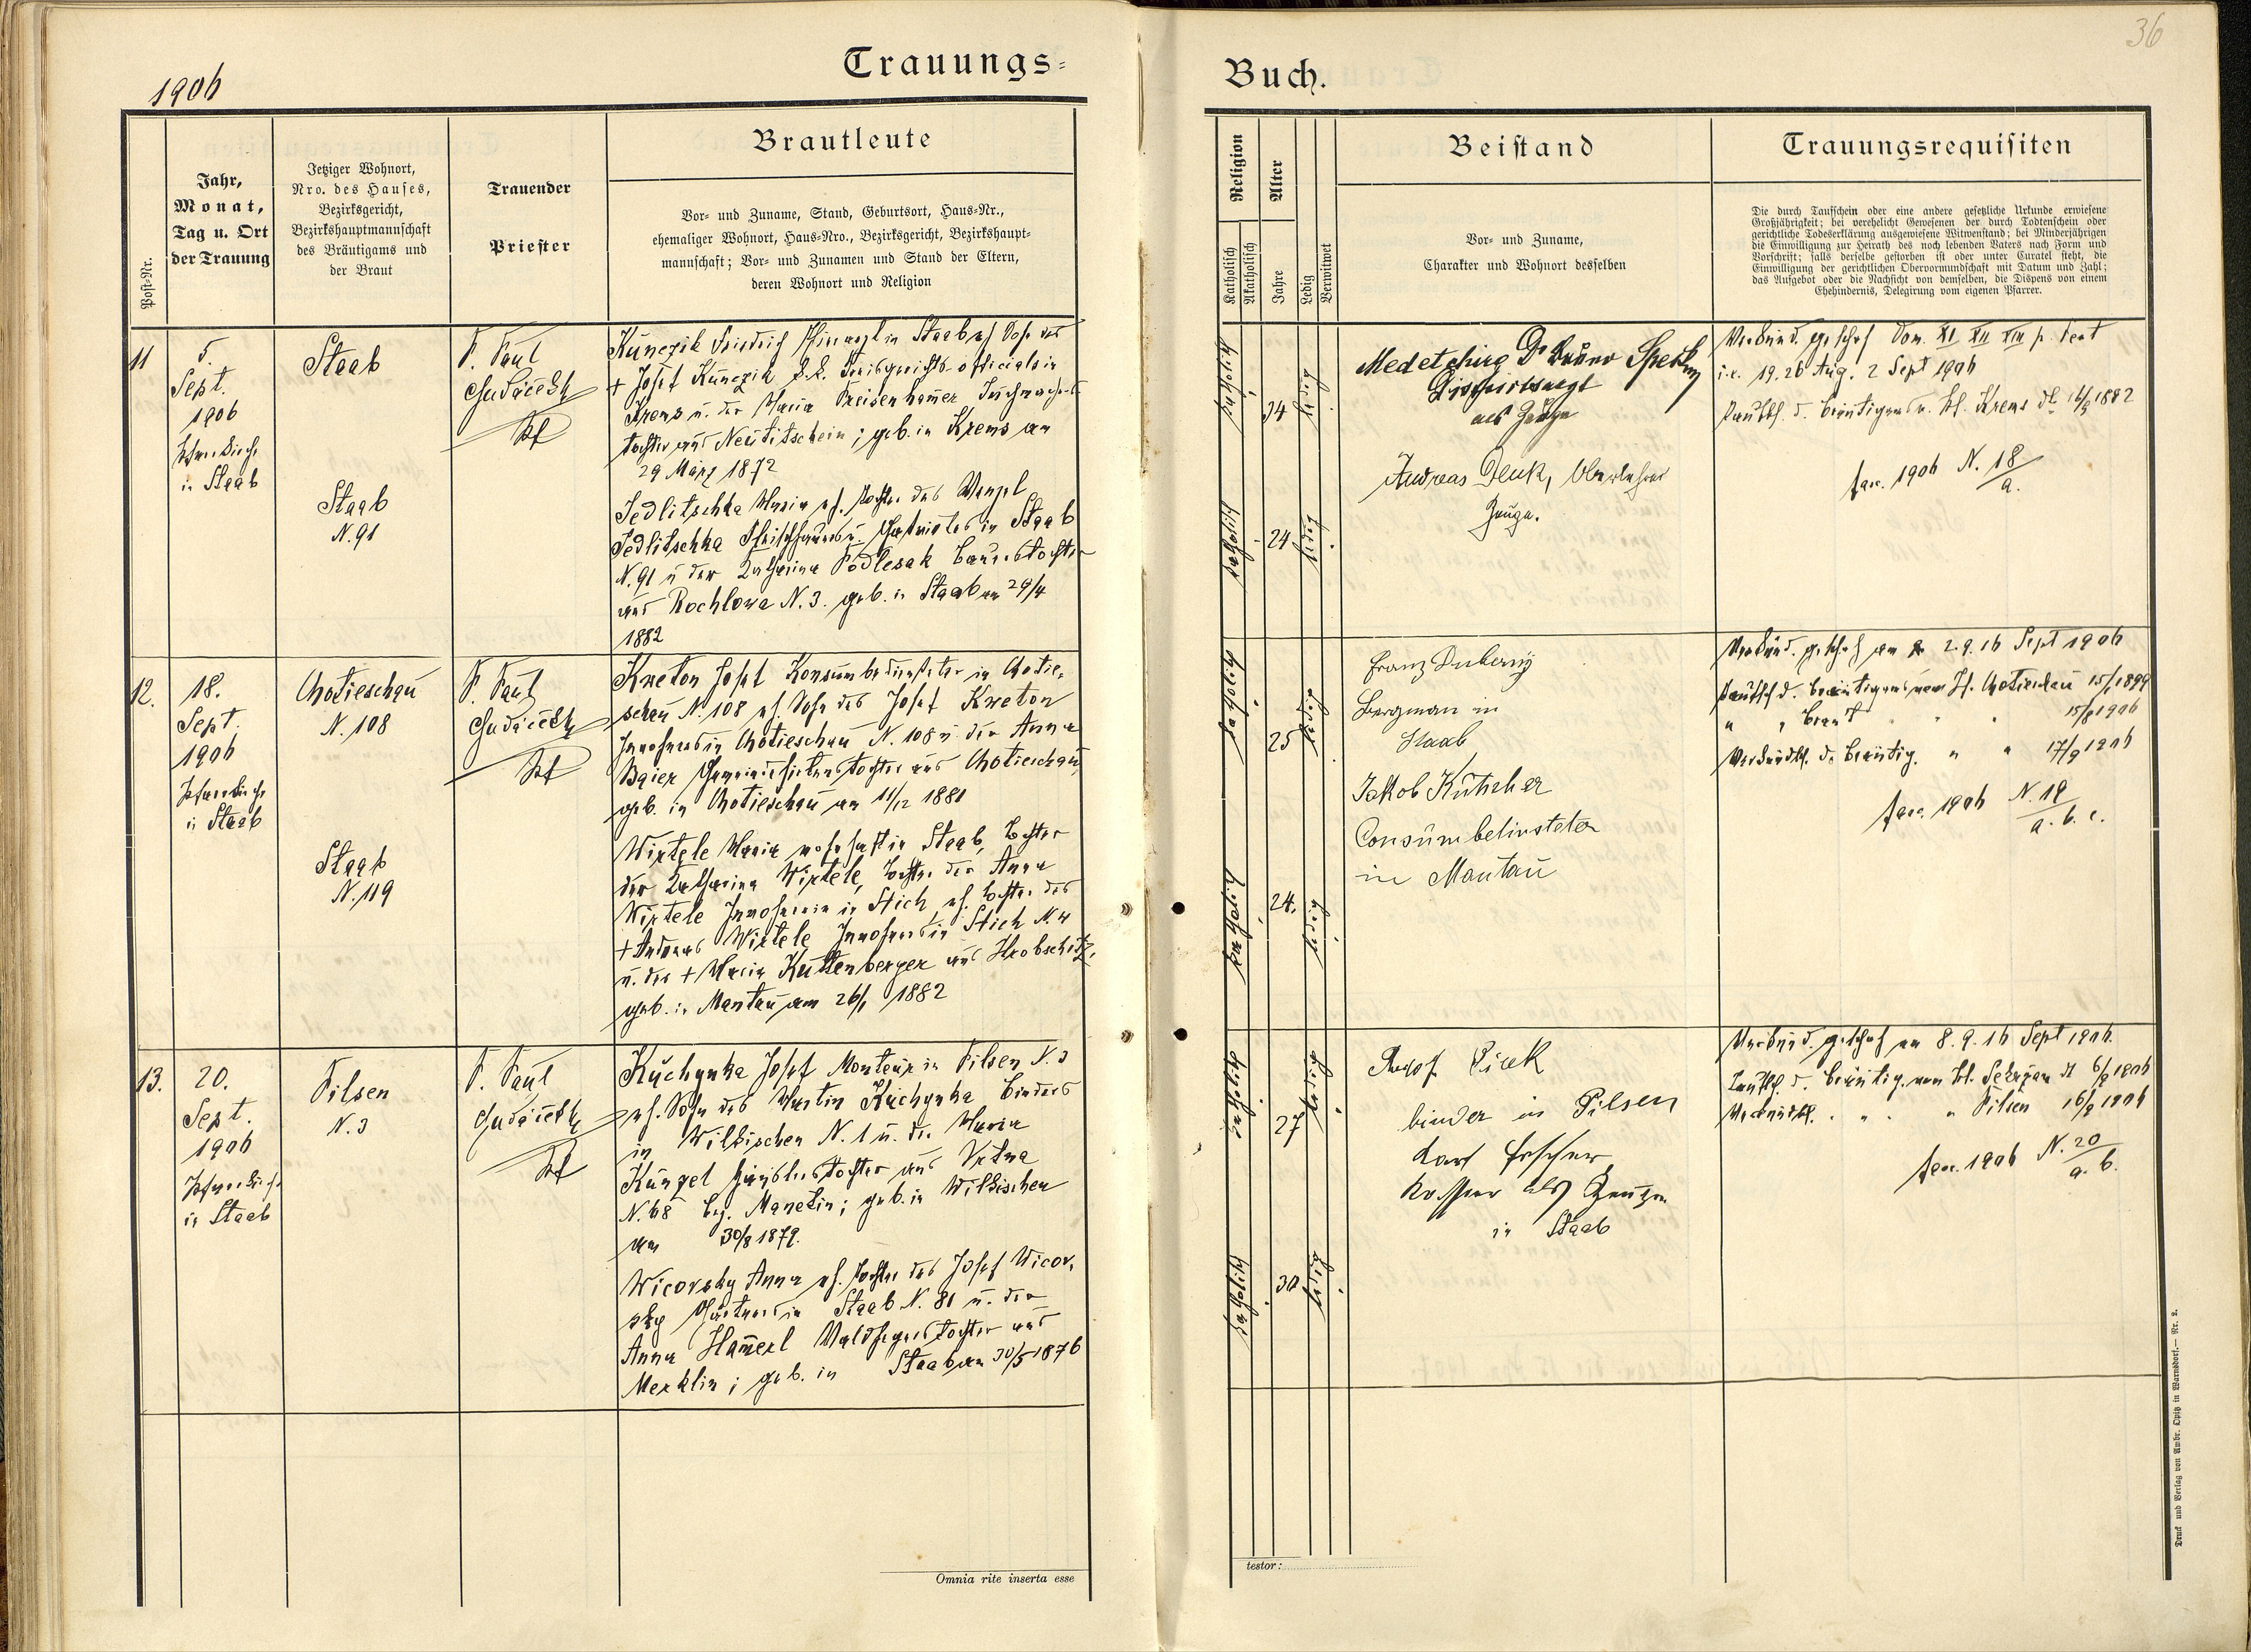 1906
Trauungs-
Post-Nr.
Jahr,
Monat,
Tag u. Ort
der Trauung
Jetziger Wohnort,
Nro. des Hauses,
Bezirksgericht,
Bezirkshauptmannschaft
des Bräutigams und
der Braut
Trauender
Priester
Brautleute
Vor- und Zuname, Stand, Geburtsort, Haus-Nr.,
ehemaliger Wohnort, Haus-Nro., Bezirksgericht, Bezirkshaupt-
mannschaft; Vor- und Zunamen und Stand der Eltern,
deren Wohnort und Religion
11
5.
Sept.
1906
Pfarrkirche
in Staab
Staab
Staab
N. 91
P. Paul
Kunczik Friedrich in Staab eh. Sohn des
+ Josef Kunczik k.k. Kreisgerichts-officials in
Krems u. der Maria Preisenhamer
tochter aus Neutitschein; geb. in Krems am
29 März 1872
Jedlitschka Maria eh. Tochter des Wenzel
Jedlitschka Fleischhauers u. in Staab
N. 91 u der Katharina Podlesak Bauerstochter
aus Rochlowa N. 3. geb. in Staab am 29/4
1882
12.
18.
Sept.
1906
Pfarrkirche
in Staab
Chotieschau
N. 108
Staab
N. 119
P. Paul
Kreton Josef Konsumbediensteter in Chotie-
schau N. 108 eh. Sohn des Josef Kreton
Inwohners in Chotieschau N. 108 u der Anna
Baier Gemeindehirtenstochter aus Chotieschau,
geb. in Chotieschau am 11/12 1881
Wirtele Maria wohnhaft in Staab, Tochter
der Katharina Wirtele, Tochter der Anna
Wirtele Inwohnerin in Stich, eh. Tochter des
+ Andreas Wirtele Inwohners in Stich N. 4
u. der + Maria Kuttenberger aus Hrobschitz,
geb. in Mantau am 26/1 1882
13.
20.
Sept.
1906
Pfarrkirche
in Staab
Pilsen
N. 3
P. Paul
Kuchynka Josef Monteur in Pilsen N. 3
eh. Sohn des Martin Kuchynka Binders
in Wilkischen N. 1 u. der Maria
Künzel Häuslerstochter aus
N. 68 bez. Manetin; geb. in Wilkischen
am 30/8 1879.
Wicovsky Anna eh. Tochter des Josef Wicov-
sky Gärtners in Staab N. 81 u. der
Anna Hamerl Waldhegerstochter aus
Merklin; geb. in Staab am 30/5 1876
Omnia rite inserta esse
36
Buch.
Religion
Katholisch
Akatholisch
Alter
Jahre
Ledig
Verwitwet
Beistand
Vor- und Zuname,
Charakter und Wohnort desselben
Trauungsrequisiten
Die durch Taufschein oder eine andere gesetzliche Urkunde erwiesene
Großjährigkeit; bei verehelicht Gewesenen der durch Todtenschein oder
gerichtliche Todeserklärung ausgewiesene Witwenstand; bei Minderjährigen
die Einwilligung zur Heirath des noch lebenden Vaters nach Form und
Vorschrift; falls derselbe gestorben ist oder unter Curatel steht, die
Einwilligung der gerichtlichen Obervormundschaft mit Datum und Zahl;
das Aufgebot oder die Nachsicht von demselben, die Dispens von einem
Ehehindernis, Delegirung vom eigenen Pfarrer.
katholisch
34
ledig
katholisch
24
ledig
Dr Bruno
Districtsarzt
als Zeuge
Andreas Denk, Oberlehrer
Zeuge.
Verkünd. geschah Dom. XI XII XIII p. Pent
i.e. 19. 26 Aug. 2 Sept 1906
Taufsch. d. Bräutigams v. Pf. Krems
fasc. 1906 N. 18
a.
katholisch
25
ledig
katholisch
24.
ledig
Franz
Bergman in
Staab
Jakob Kutscher
in Mantau
Verkünd. geschah am 2. 9. 16 Sept 1906
Taufsch d. Bräutigams vom Pf. Chotieschau 15/1 1899
" " Braut " " 15/8 1906
Verkündsch. d. Bräutig. " " 17/9 1906
fasc. 1906 N. 19
a. b. c.
katholisch
27
ledig
katholisch
30
ledig
binder in Pilsen
als Zeugen
in Staab
Verkünd. geschah am 8. 9. 16 Sept 1906.
Taufsch. d. Bräutig. vom
Verkündsch. " " " Pilsen 16/9 1906
fasc. 1906 N. 20
a. b.
testor:
Druck und Verlag von Ambr. Opitz in Warnsdorf. — Nr. 2.